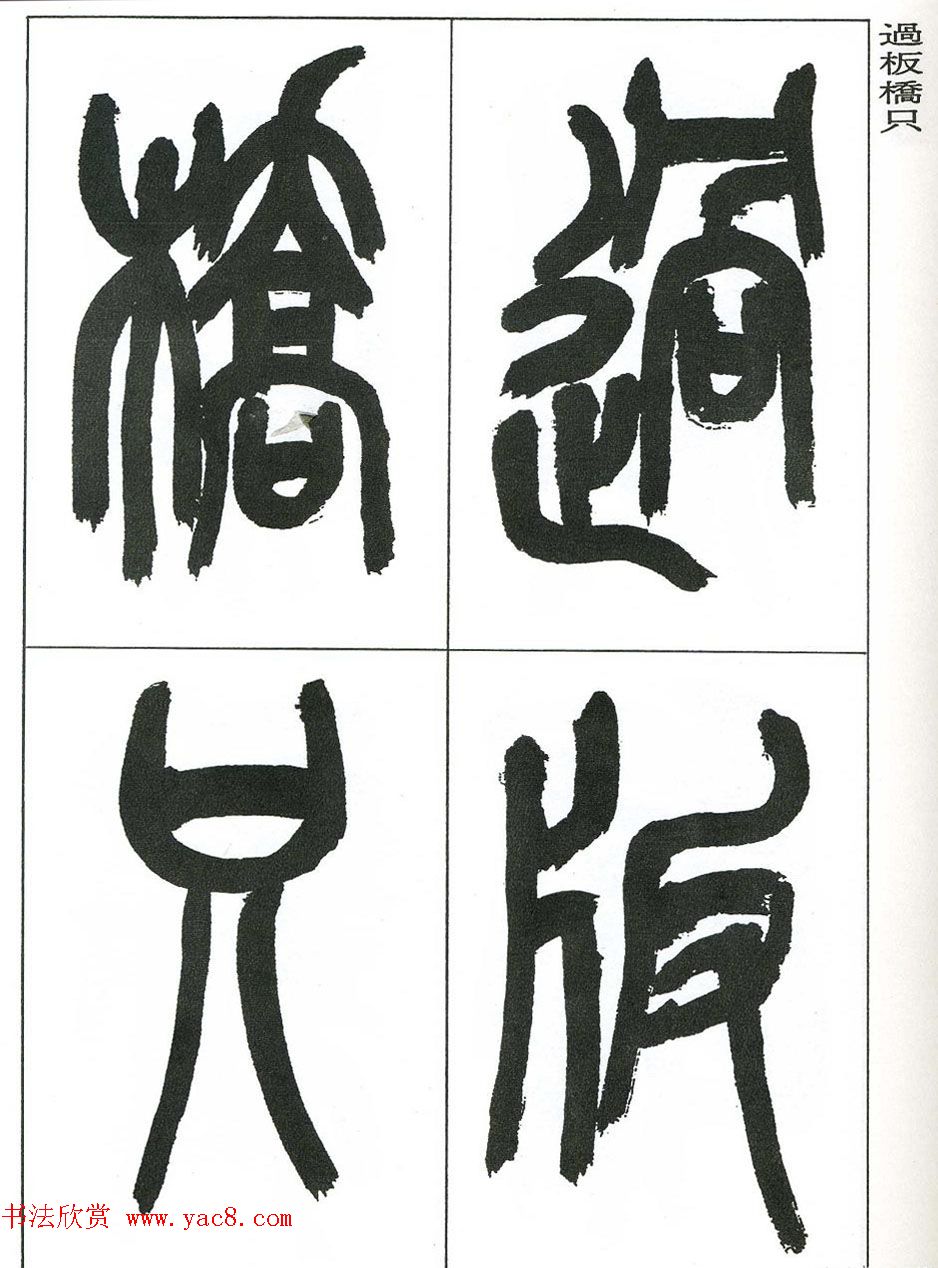 過板橋只
過版
橋只
书法欣赏 www.yac8.com